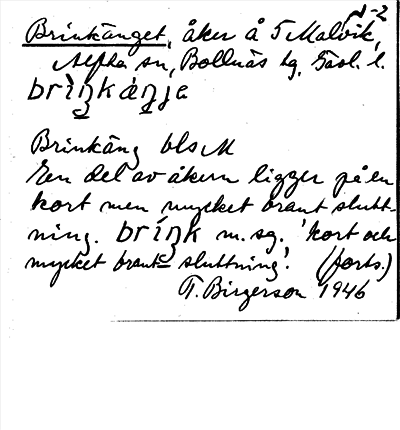 1-2
Brinkänget, åker å 5 Malvik,
Alfta sn, Bollnäs tg, Gävl. l.
briŋk ä̀ŋja
Brinkäng bls M
En del av åkern ligger på en
kort men mycket brant slutt-
ning. briŋk m.sg. 'kort och
mycket brant sluttning'. (forts.)
T. Birgerson 1946